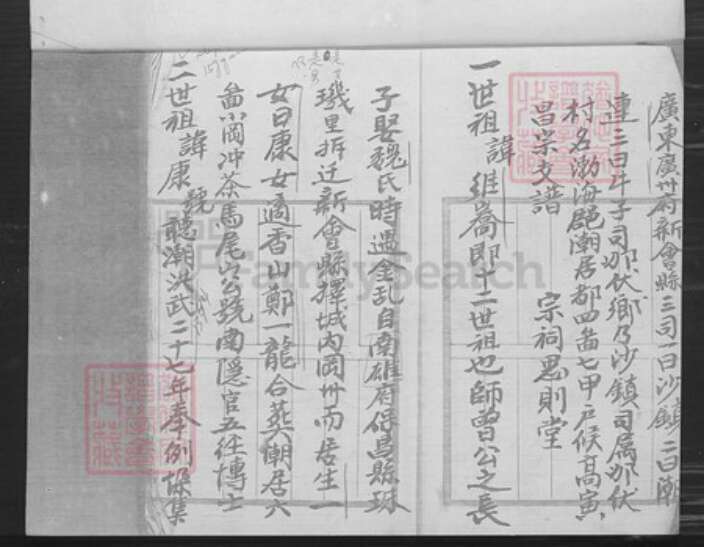 廣東廣州府新會縣三司一曰沙鎮二曰潮
連三曰牛子司那伏鄉乃沙鎮司属那伏
村名渤海郡潮居都四啚七甲戶候高寅
昌宗支譜
宗祠思則堂
一世祖諱維喬郎十二世祖也師曾公之長
子娶魏氏時遇金乱自南雄府保昌縣珠
璣里拆迁新會縣擇城內岡州而居生一
女曰康女適香山鄭一龍合葬潮居六
啚小岡冲茶馬尾山公號南隠官五經博士
二世祖諱康號聽潮洪武二十七年奉例採集
FamilySearch